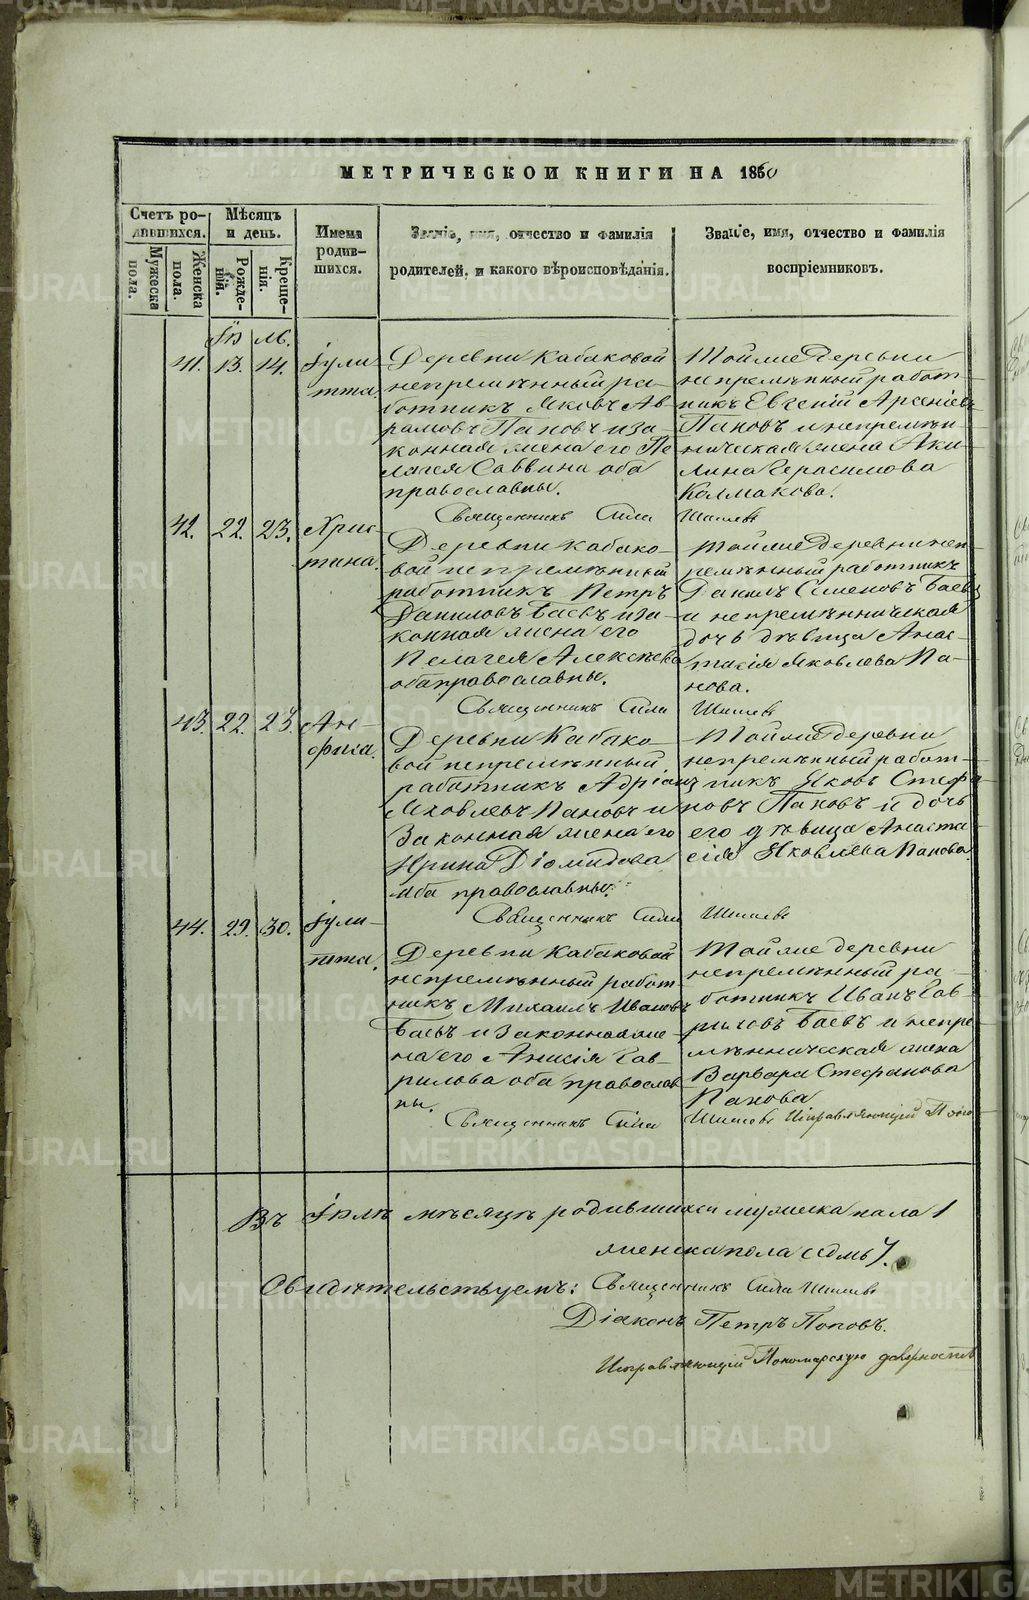 METRIKI.GASO-URAL.RU
МЕТРИЧЕСКОЙ КНИГИ НА 1860
Счетъ ро-
дившихся.
Мужеска
пола.
Женска
пола.
Мѣсяцъ
и день.
Рожде-
нія.
Креще-
нія.
Имена
родив-
шихся.
Званіе, имя, отчество и фамилія
родителей, и какого вѣроисповѣданія.
Званіе, имя, отчество и фамилія
воспріемниковъ.
Іюль.
41. 13. 14. Іули-
тта.
Деревни Кабаковой
непремѣнный ра-
ботникъ Яковъ Ав-
рамовъ Пановъ и за-
конная жена его Пе-
лагея Саввина оба
православны.
Тойже деревни
непремѣнный работ-
никъ Евгеній Арсеніевъ
Пановъ и непремѣн-
ническая жена Аки-
лина Герасимова
Колмакова.
Священникъ Сила Шишевъ
42. 22. 23. Хрис-
тина.
Деревни Кабако-
вой непремѣнный
работникъ Петръ
Даниловъ Баевъ и за-
конная жена его
Пелагея Алексѣева
оба православны.
Тойже деревни неп-
ремѣнный работникъ
Данилъ Семеновъ Баевъ
и непремѣнническая
дочь дѣвица Анас-
тасія Яковлева Па-
нова.
Священникъ Сила Шишевъ
43. 22. 23. Ан-
фиса.
Деревни Кабако-
вой непремѣнный
работникъ Адріанъ
Яковлевъ Пановъ и
законная жена его
Ирина Діомидова
оба православны.
Тойже деревни
непремѣнный работ-
никъ Яковъ Стефа-
новъ Пановъ и дочь
его дѣвица Анаста-
сія Яковлева Панова.
Священникъ Сила Шишевъ
44. 29. 30. Іули-
тта.
Деревни Кабаковой
непремѣнный работ-
никъ Михаилъ Ивановъ
Баевъ и законная же-
на его Анисія Гав-
рилова оба православ-
ны.
Тойже деревни
непремѣнный ра-
ботникъ Иванъ Гав-
риловъ Баевъ и непре-
мѣнническая жена
Варвара Стефанова
Панова
Священникъ Сила Шишевъ Исправляющій
Въ Іюлѣ мѣсяцѣ родившихся мужеска пола 1
женска пола седмь 7.
Свидѣтельствуемъ: Священникъ Сила Шишевъ
Діаконъ Петръ Поповъ.
Исправляющій Пономарскую должность